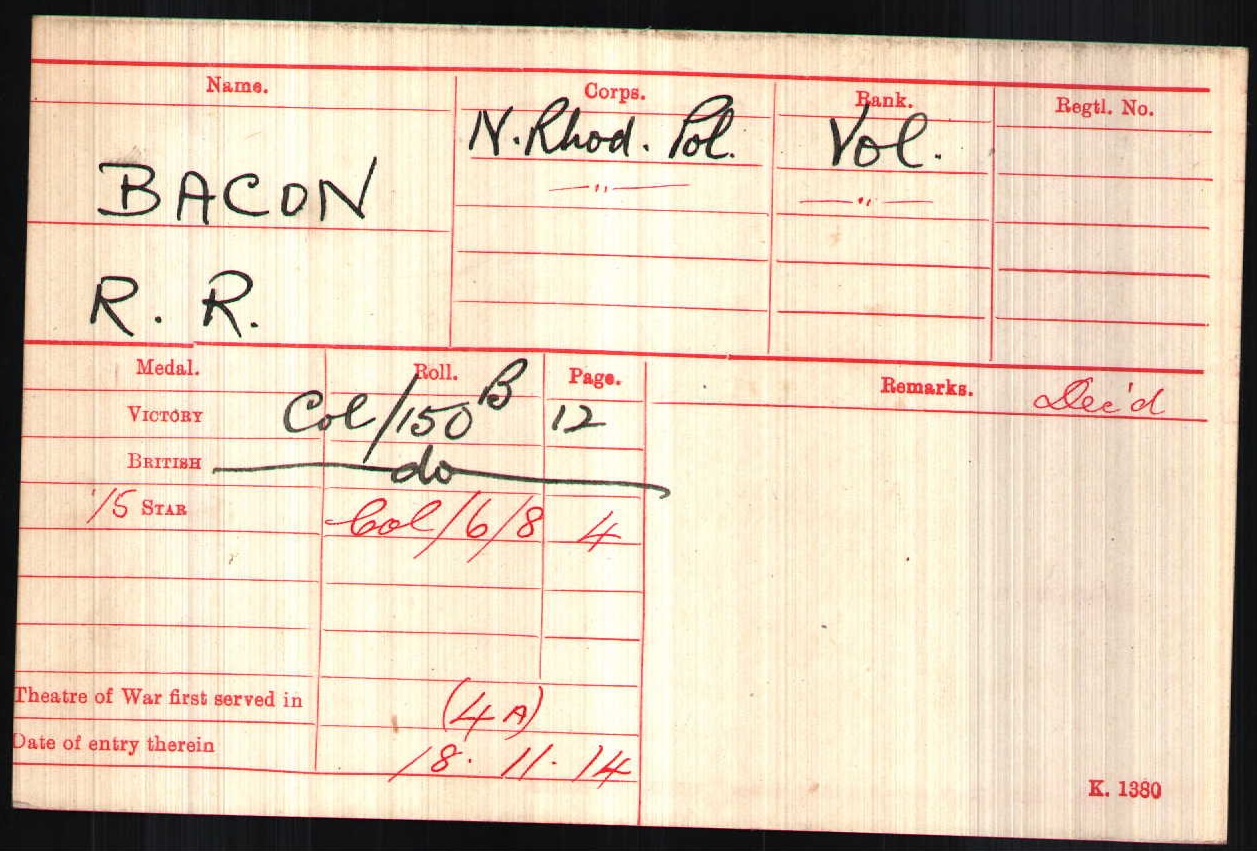 Name. Corps. Rank. Regtl. No.
BACON N. Rhod. Pol. Vol.
—"— —"—
R. R.
Medal. Roll. Page. Remarks. Dec'd
VICTORY Col/150 B 12
BRITISH do
'15 STAR Col/6/8 4
Theatre of War first served in (4A)
Date of entry therein 18. 11. 14
K. 1380